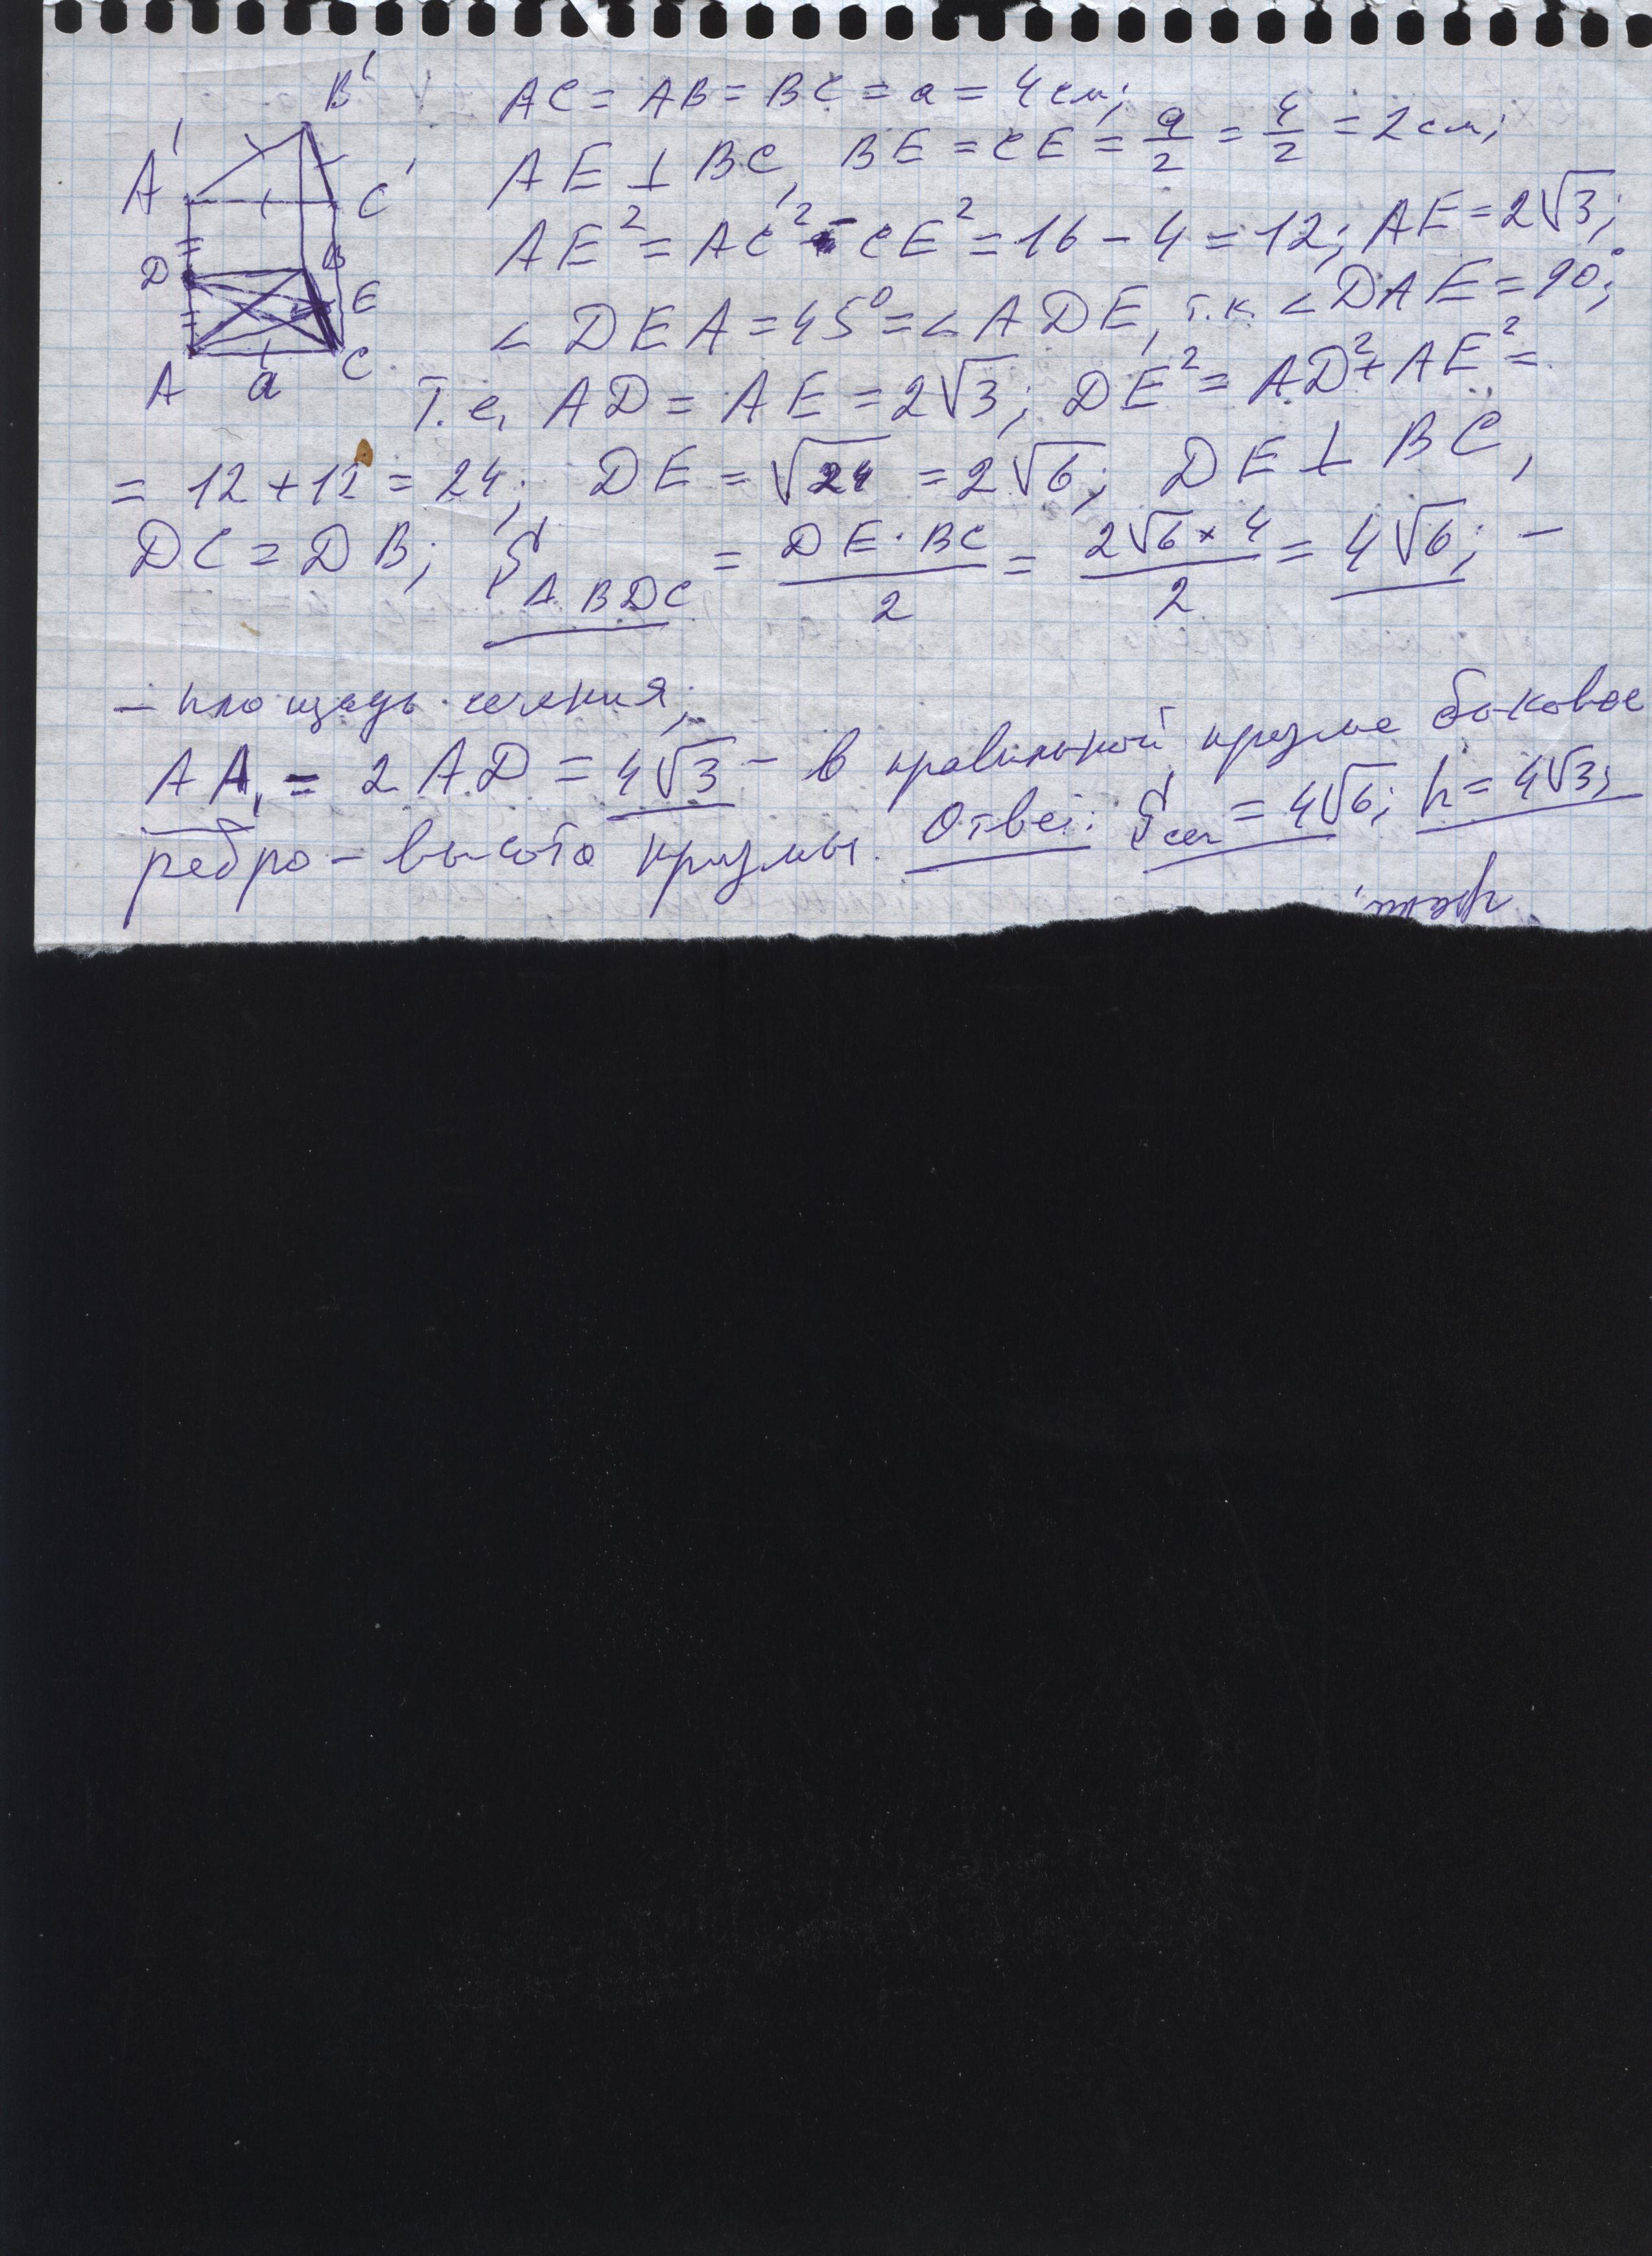 B'
A'
C'
D
B
E
A
a
C
AC = AB = BC = a = 4 см;
AE ⊥ BC, BE = CE = a/2 = 4/2 = 2 см;
AE² = AC² - CE² = 16 - 4 = 12; AE = 2√3;
∠ DEA = 45° = ∠ ADE, т.к. ∠ DAE = 90°;
Т.е. AD = AE = 2√3; DE² = AD² + AE² =
= 12 + 12 = 24; DE = √24 = 2√6; DE ⊥ BC,
DC = DB; S△BDC = DE · BC/2 = 2√6 × 4/2 = 4√6; –
– площадь сечения;
AA₁ = 2AD = 4√3 – в правильной призме боковое
ребро – высота призмы. Ответ: Sсеч = 4√6; h = 4√3;
грани;